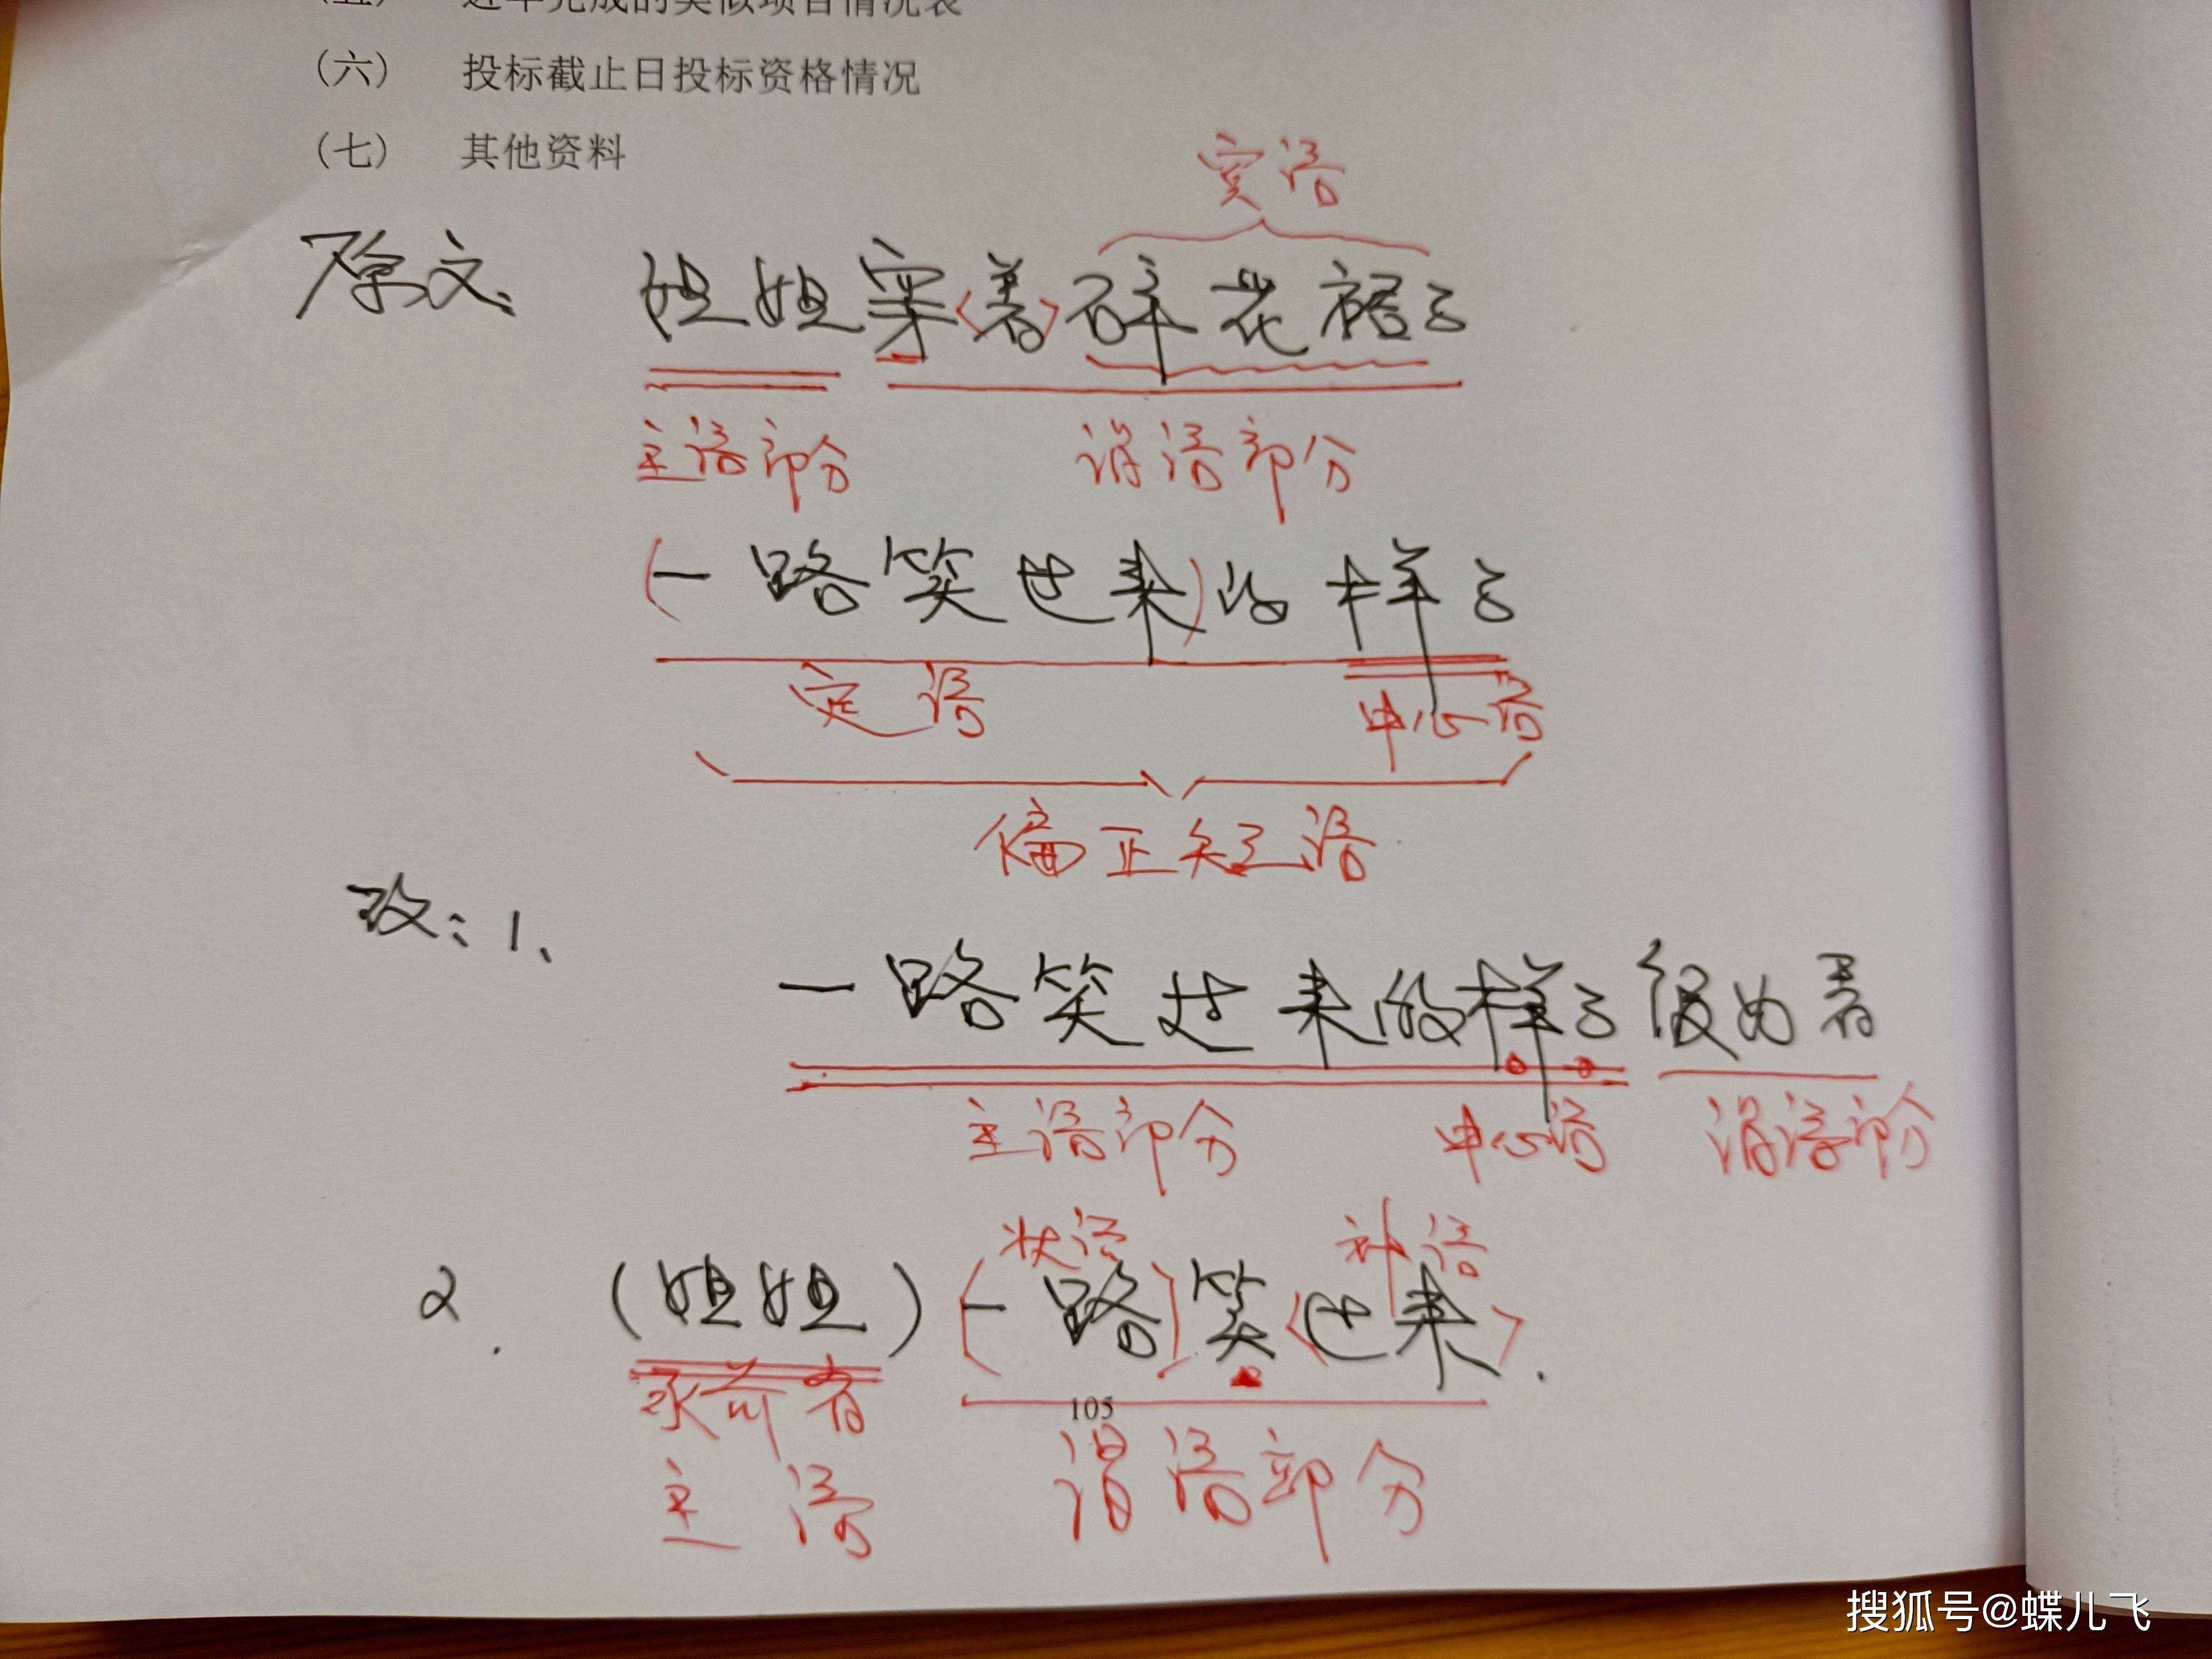 (五) 近年完成的类似项目情况表
(六) 投标截止日投标资格情况
(七) 其他资料
宾语
原文: 姐姐穿<着>碎花裙子
主语部分 谓语部分
(一路笑过来)的样子
定语 中心语
偏正短语
改:1、
一路笑过来的样子很好看
主语部分 中心语 谓语部分
状语 补语
2. (姐姐)[一路]笑<过来>.
承前省 105
主语 谓语部分
搜狐号@蝶儿飞